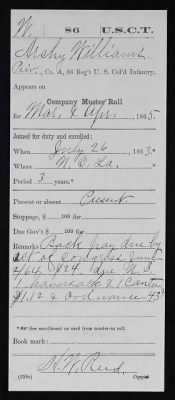 W. | 86 | U.S.C.T.
Archy Williams
Priv., Co. A, 86 Reg't U. S. Col'd Infantry.
Appears on
Company Muster Roll
for Mar. & Apr., 1865.
Joined for duty and enrolled:
When July 26, 1863.*
Where N. O. La.
Period 3 years.*
Present or absent Present
Stoppage, $ 100 for
Due Gov't $ 100 for
Remarks: Back pay due by
act of Congress June
1 Haversack 1 Canteen
$1.12 & Ordnance 43
*See enrollment on card from muster-in roll.
Book mark:
H. W. Reed
(358c) Copyist.